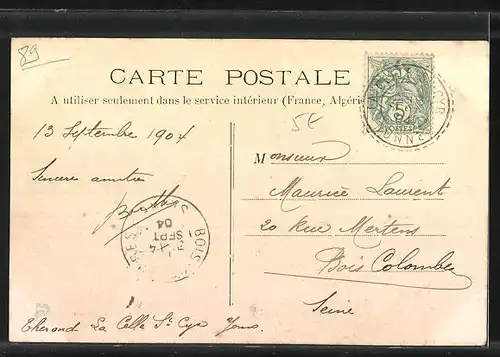 89
CARTE POSTALE
A utiliser seulement dans le service intérieur (France, Algérie
5c
POSTES
ST CYR
YONNE
5€
13 Septembre 1904
Monsieur
Sincère amitié
Maurice Laurent
20 Rue Mertens
Bois Colombes
Seine
BOIS
SEPT
04
La Celle St Cyr Yonne